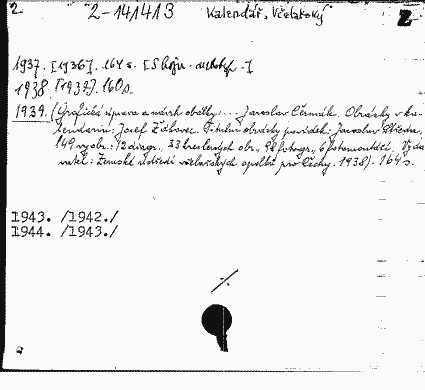 2 2-141413 Kalendář, Včelařský 2
1937. [1936]. 164 s. [S hojn. autotyp.]
1938. [1937]. 160 s.
1939. (Grafická úprava a návrh obálky: ... Jaroslav Čermák. Obrázky v ka-
lendariu: Josef Titulní obrázky povídek: Jaroslav
149 vyobr.: 12 diagr., 33 kreslených obr., 98 fotogr., 6 fotomontáží. Vyda-
vatel: Zemské ústředí včelařských spolků pro Čechy. 1938). 164 s.
1943. /1942./
1944. /1943./